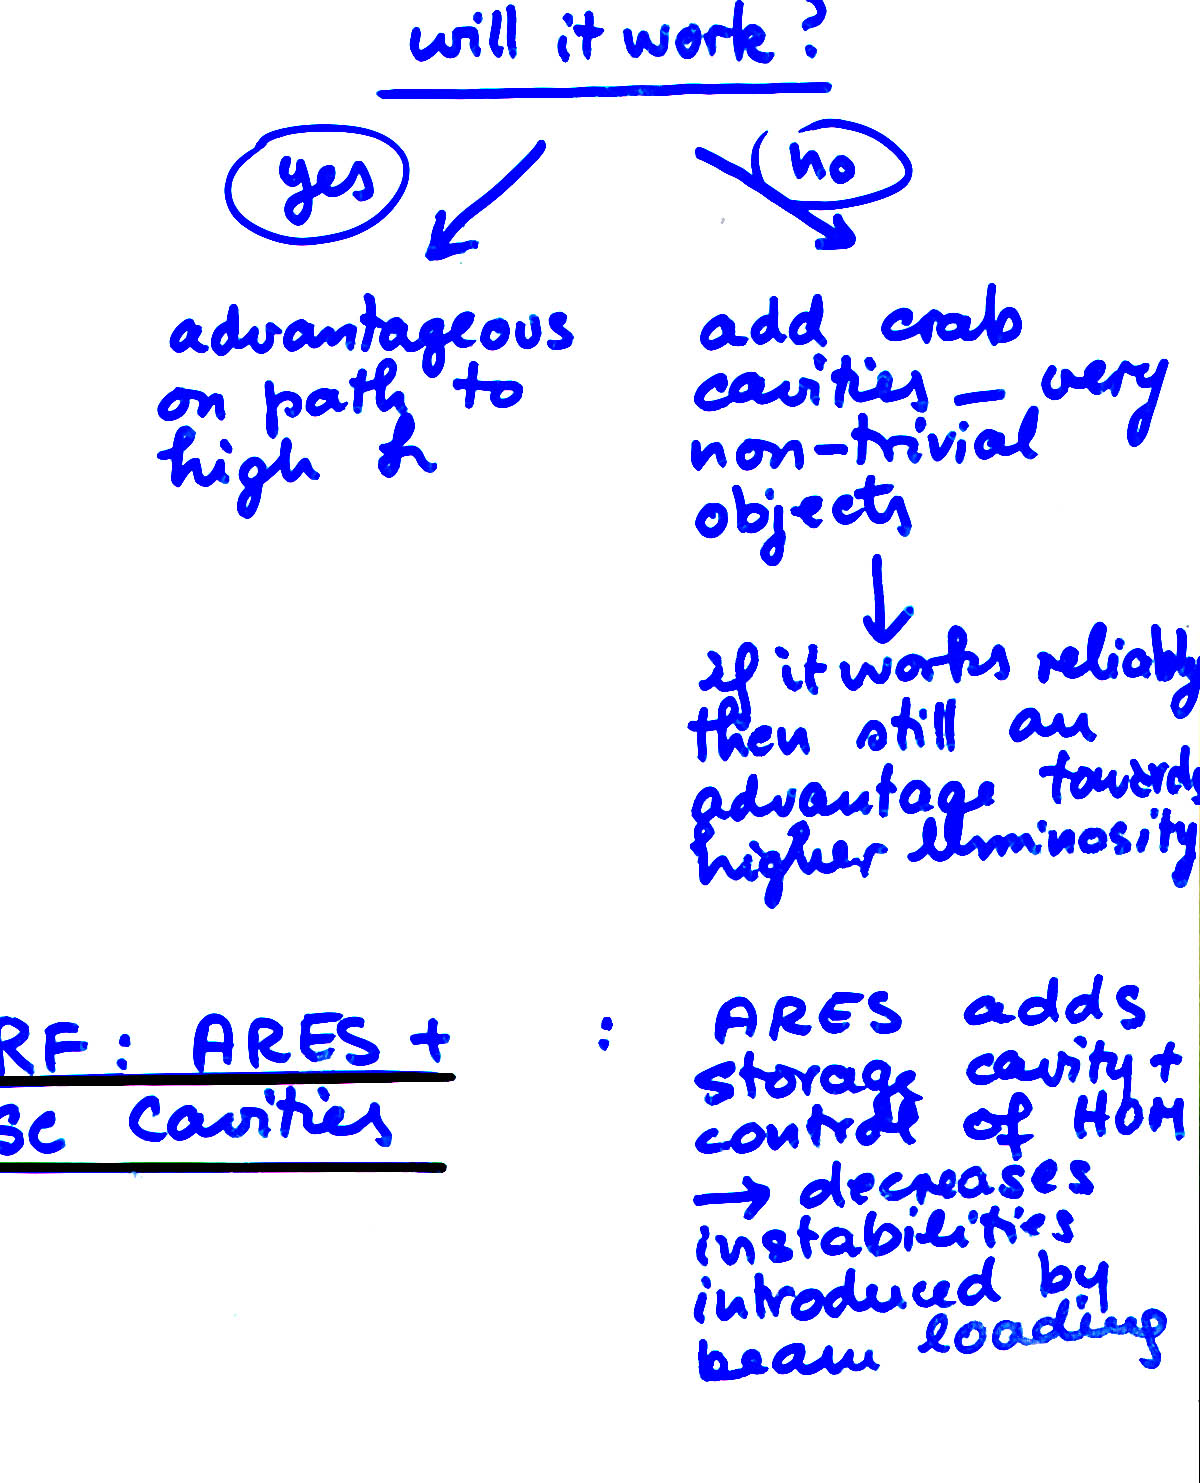 will it work?
yes
no
advantageous
on path to
high L
add crab
cavities – very
non-trivial
objects
if it works reliably
then still an
advantage towards
higher luminosity
RF: ARES +
SC cavities
:
ARES adds
storage cavity +
control of HOM
→ decreases
instabilities
introduced by
beam loading